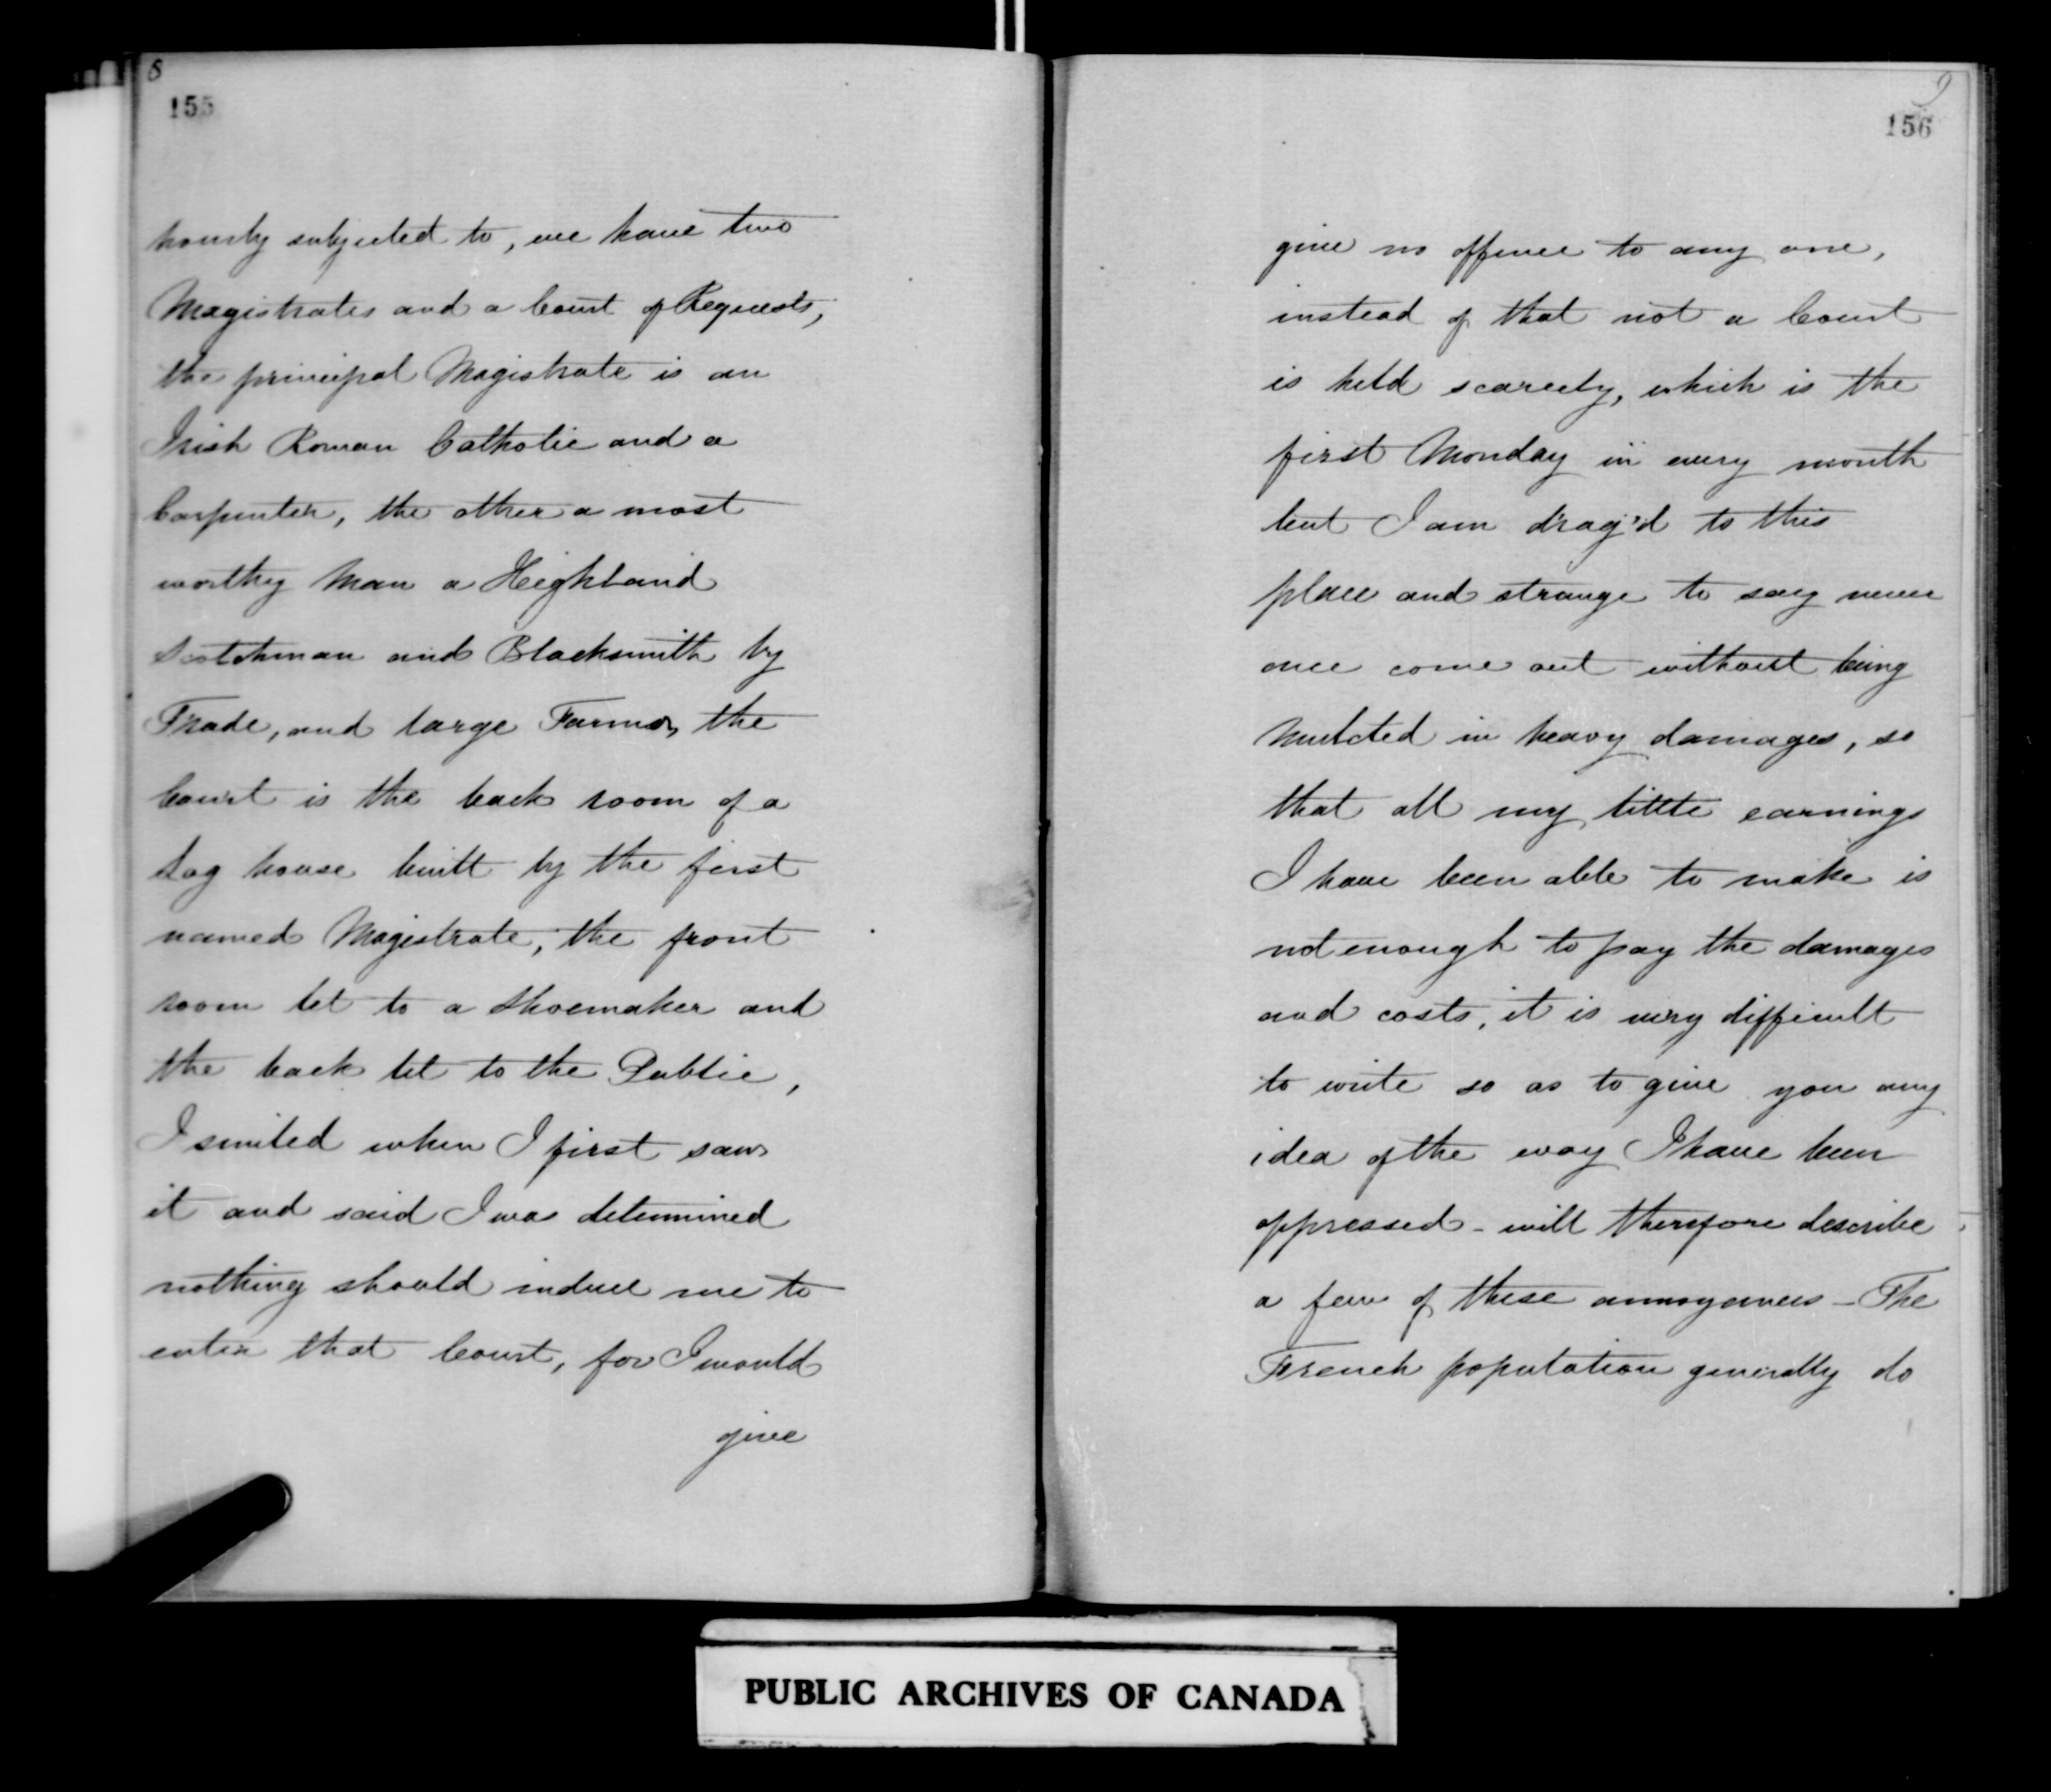 8
155
hourly subjected to, we have two
Magistrates and a Court of Requests,
the principal Magistrate is an
Irish Roman Catholic and a
Carpenter, the other a most
worthy Man a Heighland
Scotchman and Blacksmith by
Trade, and large Farmer, the
Court is the back room of a
Log house built by the first
named Magistrate, the front
room let to a Shoemaker and
the back let to the Public,
I smiled when I first saw
it and said I was determined
nothing should induce me to
enter that Court, for I would
give
9
156
give no offence to any one,
instead of that not a Court
is held scarcely, which is the
first Monday in every month
but I am drag'd to this
place and strange to say never
once come out without being
Mulcted in heavy damages, so
that all my little earnings
I have been able to make is
not enough to pay the damages
and costs, it is very difficult
to write so as to give you any
idea of the way I have been
oppressed - will therefore describe
a few of these annoyances - The
French population generally do
PUBLIC ARCHIVES OF CANADA